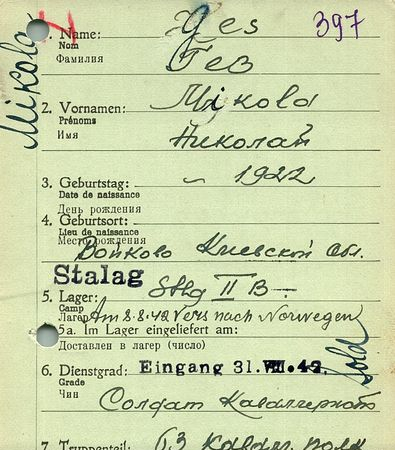 Mikola
397
1. Name: Ges
Nom
Фамилия Гев
2. Vornamen: Mikola
Prénoms
Имя Николай
3. Geburtstag: – 1922
Date de naissance
День рождения
4. Geburtsort:
Lieu de naissance
Место рождения
Войково Киевской Обл.
Stalag
5. Lager: Stlg II B –
Camp
Лагерь Am 8.8.42 Vers nach Norwegen
5a. Im Lager eingeliefert am:
Доставлен в лагерь (число)
6. Dienstgrad: Eingang 31. VII. 42.
Grade
Чин Sold
Солдат
7. Truppenteil: 13 кавал. полк